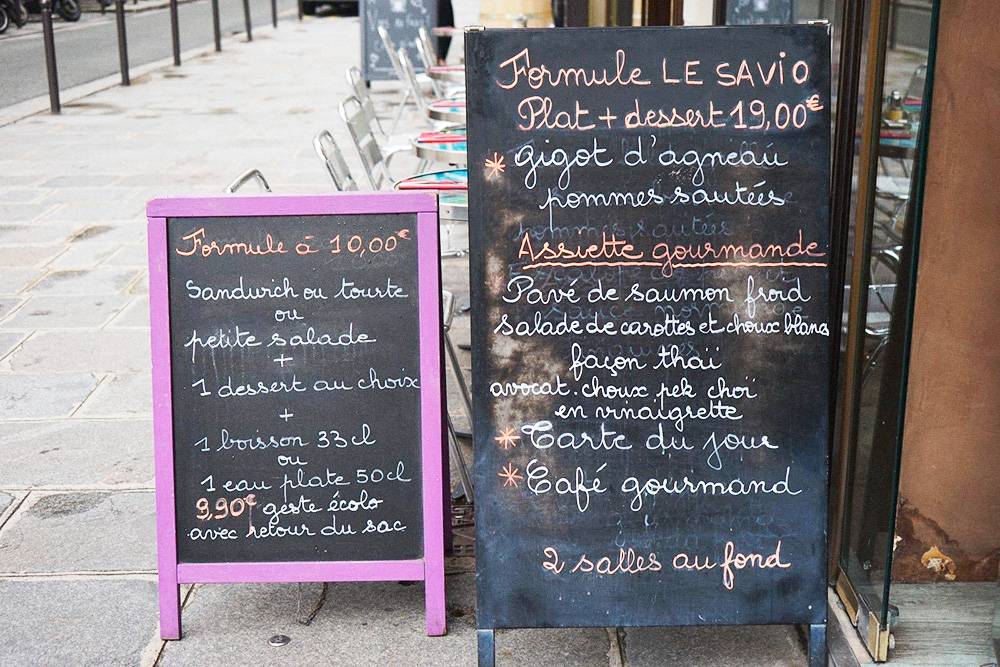 Formule à 10,00€
Sandwich ou tourte
ou
petite salade
+
1 dessert au choix
+
1 boisson 33cl
ou
1 eau plate 50cl
9,90€ geste écolo
avec retour du sac
Formule LE SAVIO
Plat + dessert 19,00€
* gigot d'agneau
pommes sautées
Assiette gourmande
Pavé de saumon froid
salade de carottes et choux blancs
façon thaï
avocat. choux pek choï
en vinaigrette
* Tarte du jour
* Café gourmand
2 salles au fond